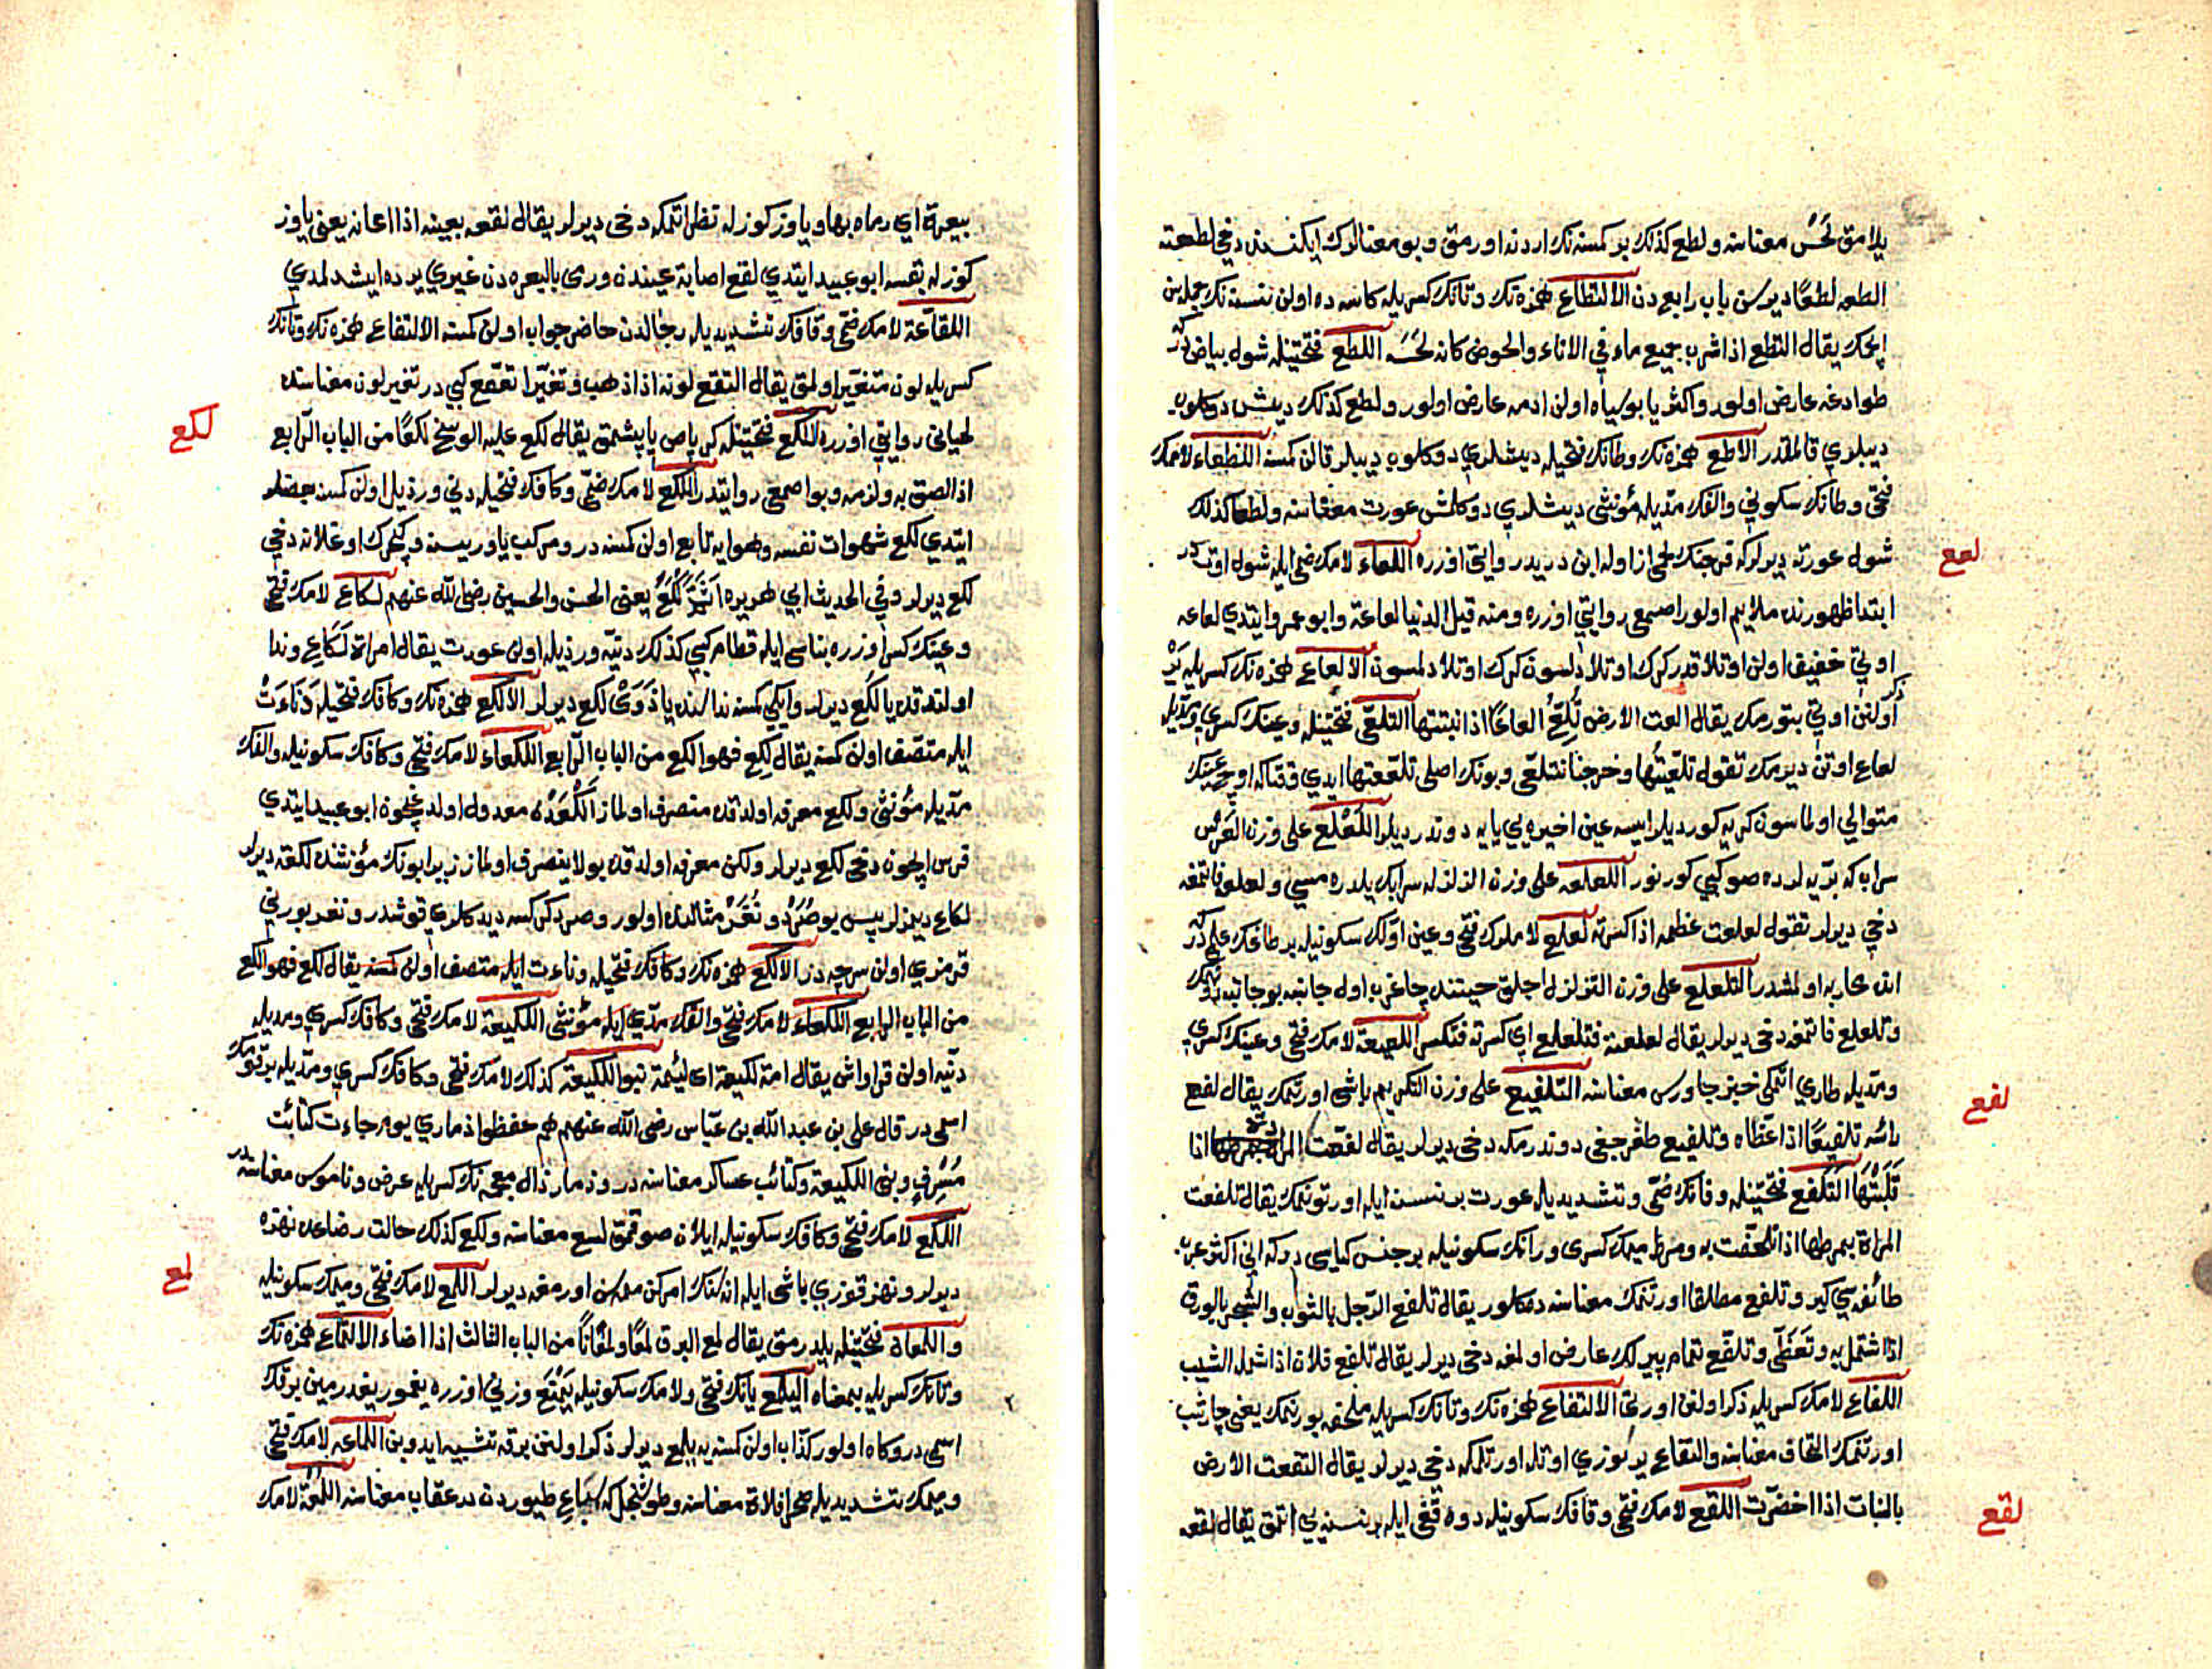 يلامق لَحْس معناسنه ولطع كذلك بر كمسنه نك اردنه اورمق وبو معنالرك ايكنسنده دخى لطعته
الطعه لطعًا ديرسن باب رابع دن الالتطاع همزه نك وتانك كسريله كاسه ده اولن نسنه نك جمله سن
ايچمك يقال التطع اذا شرب جميع ماء في الاناء والحوض كانه لحسه اللطع فتحتينله شول بياض در كه
طوداغه عارض اولور واكثر يا بو سياه اولن ادمه عارض اولور ولطع كذلك ديش دوكلوب
ديبلري قالمقدر الالطع همزه نك وطانك فتحيله ديشلري دوكلوب ديبلر قالن كمسنه اللطعاء لامك
فتحى وطانك سكونى والفك مديله مؤنثى ديشلري دوكلمش عورت معناسنه ولطعا كذلك
لعع
شول عورته ديرلر كه فرجنك لحمى از اوله ابن دريد روايتى اوزره اللعاع لامك ضمى ايله شول اوت در
ابتدا ظهورنده ملايم اولور اصمعى روايتى اوزره ومنه قيل الدنيا لعاعة وابو عمرو ايتدي لعاعه
اوتى خفيف اولن اوتلاقدر كرك اوتلا دلسون كرك اوتلادلمسون الالعاع همزه نك كسريله يَرْ
ذكر اولنن اوتى بتورمك يقال العت الارض تُلِعّ العاعًا اذا انبتتها التلعّى فتحتينله وعينك كسرى وتشديديله
لعاع اوتن ديرمك تقول تلعّيتها وخرجنا نتلعّى وبونك اصلى تلعّعتها ايدي وقتاكه اوچ عينك
متوالي اولماسون كريه كورديلر ايسه عين اخيره يى يايه دوندرديلر اللَعْلع على وزن الفَرش
سراب كه بريه لرده صو كبي كورنور اللعلعه على وزن الزلزله سراب يلدره مسي ولعلع قامتغه
دخى ديرلر تقول لعلعت عظمه اذا كسرته لعلع لاملرك فتحى وعين اولك سكونيله بر طاغك علمى در كه
انده محاربه اولمشدر التلعلع على وزن التزلزل اجلق حيتنده چاغرب اول جانبه بو جانبه دونمك
وتلعلع قامتغه دخى ديرلر يقال لعلعته فتلعلع اي كسرته فتكسر اللعيعة لامك فتحى وعينك كسري
لفع
ومديله طاري اتمكى خبز جاورس معناسنه التلفيع على وزن التكريم باشى اورتمك يقال لفع
راسه تلفيعًا اذا غطاه وتلفيع طغرجغى دوندرمكه دخى ديرلر يقال لفعت المزادة اذا
قَلَبْتَها التَلفّع فتحتينله وفانك ضمّى وتشديديله عورت بر نسنه ايله اورتونمك يقال تلفعت
المراة بمرطها اذا تلحّفت به ومرط ميمك كسرى ورانك سكونيله بر جنس كساءى در كه انى اكثر عرب
طائفه سي كير وتلفع مطلقا اورتنمك معناسنه ده كلور يقال تلفع الرجل بالثوب والشجر بالورق
اذا اشتمل به وتَغَطّى وتلفّع تمام پيرلك عارض اولمغه دخى ديرلر يقال تلفع فلان اذا شمله الشيب
اللفاع لامك كسريله ذكر اولنن اورتى الالتفاع همزه نك وتانك كسريله ملحفه بورنمك يعنى چارشب
اورتنمك التحاف معناسنه والتفاع ير يوزي اوتله اورتلمكه دخى ديرلر يقال التفعت الارض
لقع
بالنبات اذا اخضرّت اللقع لامك فتحى وقافك سكونيله دوه قغى ايله بر نسنه يى اتمق يقال لقعه
ببعرة اي رماه بها وياوز كوزله نظر اتمكه دخى ديرلر يقال لقعه بعينه اذا اعانه يعنى ياوز
كوزله بقسه ابو عبيد ايتدي لقع اصابة عيندن ورمى بالبعره دن غيري يرده ايشدلمدي
اللقّاعة لامك ضمّى وقافك تشديديله رجالدن حاضر جواب اولن كمسنه الالتقاع همزه نك وتانك
كسريله لون متغيّر اولمق يقال التقع لونه اذا ذهب وتغيّر التقع كبي در تغير لون معناسنده
لكع
لحيانى روايتى اوزره اللكع فتحتينله كر پاص ياپشمق يقال لكع عليه الوسخ لكعًا من الباب الرابع
اذا لصق به ولزمه وبو اصمعى روايتدر اللُكع لامك ضمّى وكافك فتحيله دنى ورذيل اولن كمسنه بعضلر
ايتدي لكع شهوات نفسه وهوايه تابع اولن كمسنه در ومركب ياوريسنه وكچرك اوغلانه دخى
لكع ديرلر وفي الحديث ابي هريره اَثَمَّ لُكَعُ يعنى الحسن والحسين رضى الله عنهم لَكَاعِ لامك فتحى
وعينك كسر اوزره بناسى ايله قطام كبي كذلك دنيّه ورذيله اولن عورت يقال امراة لَكَاعِ وندا
اولندقده يا لُكَع ديرلر وايكي كمسنه نداسنده يا ذَوَى لكع ديرلر الالكع همزه نك وكافك فتحيله دَنَاءَتْ
ايله متصف اولن كمسنه يقال لكِع فهو الكع من الباب الرّابع اللكعاء لامك فتحى وكافك سكونيله والفك
مديله مؤنثى ولكع معرفه اولدقده منصرف اولماز اَلْكَعْدَن معدول اولدغيچون ابو عبيد ايتدي
فرس ايچون دخى لكع ديرلر ولكن معرفه اولدقده بو لا ينصرف اولماز زيرا بونك مؤنثنده لكعه ديرلر
لكاع ديمزلر پس بو صُرَدْ ونُغَرْ مثالنده اولور وصرد كركسه ديدكلري قوشدر ونغر بورنى
قرمزي اولن سرچه در الالكع همزه نك وكافك فتحيله دناءت ايله متصف اولن كمسنه يقال لكع فهو الكع
من الباب الرابع اللكعاء لامك فتحى والفك مدّي ايله مؤنثى اللكيعة لامك فتحى وكافك كسري ومديله
دنيّه اولن قراواش يقال امة لكيعة اى لئيمة بنو اللكيعة كذلك لامك فتحى وكافك كسري ومديله بر قومك
اسمى در قال على بن عبد الله بن عبّاس رضى الله عنهم هم حفظوا ذماري يوم جاءت كتائب
مُسْرِفٍ وبنى اللكيعة وكتائب عساكر معناسنه در وذمار ذال معجمه نك كسريله عرض وناموس معناسنه در
اللكع لامك فتحى وكافك سكونيله ايلان صوقمق لسع معناسنه ولكع كذلك حالت رضاعده نهزه
لمع
ديرلر ونهز قوزي باشى ايله اناسنك امركن ممه سن اورمغه ديرلر اللمع لامك فتحى وميمك سكونيله
واللمعان فتحتينله يلدرمق يقال لمع البرق لمعًا ولمعانًا من الباب الثالث اذا اضاء الالتماع همزه نك
وتانك كسريله بمعناه اليلمع يانك فتحى ولامك سكونيله يَمْنَع وزنى اوزره يغمور يغدرمين برقك
اسمى در وكاه اولور كذاب اولن كمسنه يه يلمع ديرلر ذكر اولنن برقه تشبيه ايدوبن اللماعه لامك فتحى
وميمك تشديديله صحرا فلاة معناسنه وطوشنجل كه سِبَاعِ طيوردن در عقاب معناسنه اللُمْعَة لامك